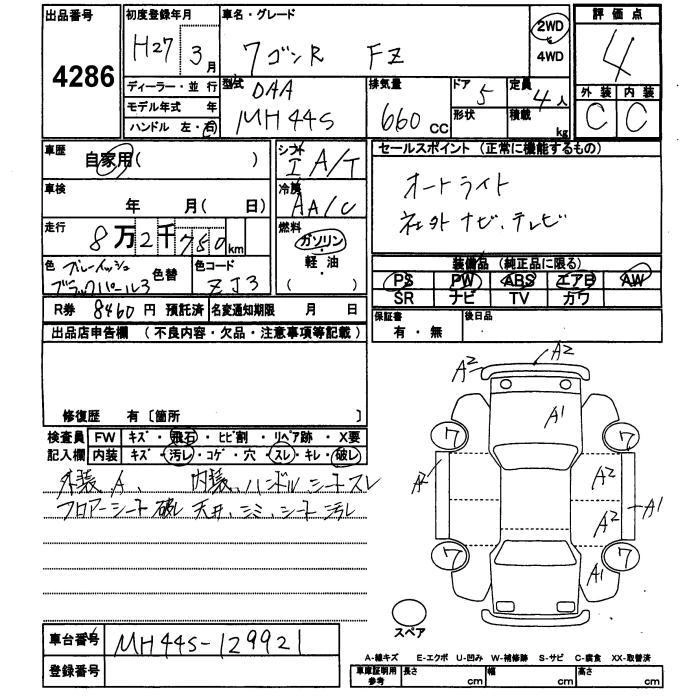 出品番号 4286
初度登録年月 H27 3月
車名・グレード ワゴンR FZ
2WD
4WD
評価点 4
外装 内装
C C
ディーラー・並行
モデル年式 年
ハンドル 左・右
型式 DAA
MH44S
排気量 660 CC
ドア 5
形状
定員 4人
積載 kg
車歴 自家用( )
シフト I A/T
セールスポイント (正常に機能するもの)
オートライト
社外ナビ、テレビ
車検 年 月( 日)
冷房 AA/C
走行 8万2千780km
燃料 ガソリン・軽・油 ( )
色 ブルーイッシュ
ブラックパール3
色替
色コード ZJ3
装備品 (純正品に限る)
PS PW ABS エアB AW
SR ナビ TV カワ
R券 8460円 預託済 名変通知期限 月 日
保証書 有・無
後日品
出品店申告欄 (不良内容・欠品・注意事項等記載)
修復歴 有〔箇所 〕
検査員 FW キズ・飛石・ヒビ割・リペア跡・X要
記入欄 内装 キズ・汚レ・コゲ・穴・スレ・キレ・破レ
外装、A、 内装、ハンドルシートスレ
フロアーシート破レ 天井、シミ、シート汚レ
A2 A2
A1
ワ ワ
A2 A2
A2 A1
ワ A1 ワ
スペア
車台番号 MH44S-129921
登録番号
A-線キズ E-エクボ U-凹み W-補修跡 S-サビ C-腐食 XX-取替済
車庫証明用参考 長さ cm 幅 cm 高さ cm